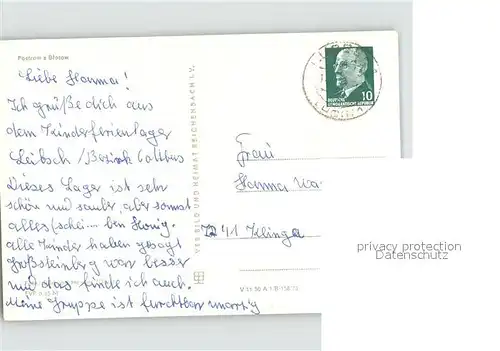 Postrum a Glosow
Liebe Hanna!
Ich grüße dich aus
dem Kinderferienlager
Leibsch / Bezirk Cottbus
Dieses Lager ist sehr
schön und sauber, aber sonst
alles (schei.... ben Honig.
alle Kinder haben gesagt
Großsteinberg war besser
und das finde ich auch.
Meine Gruppe ist furchtbar
VEB BILD UND HEIMAT REICHENBACH I. V.
10
DEUTSCHE
DEMOKRATISCHE REPUBLIK
Frau
Hanna Wa
7241 Klinga
privacy protection
Datenschutz